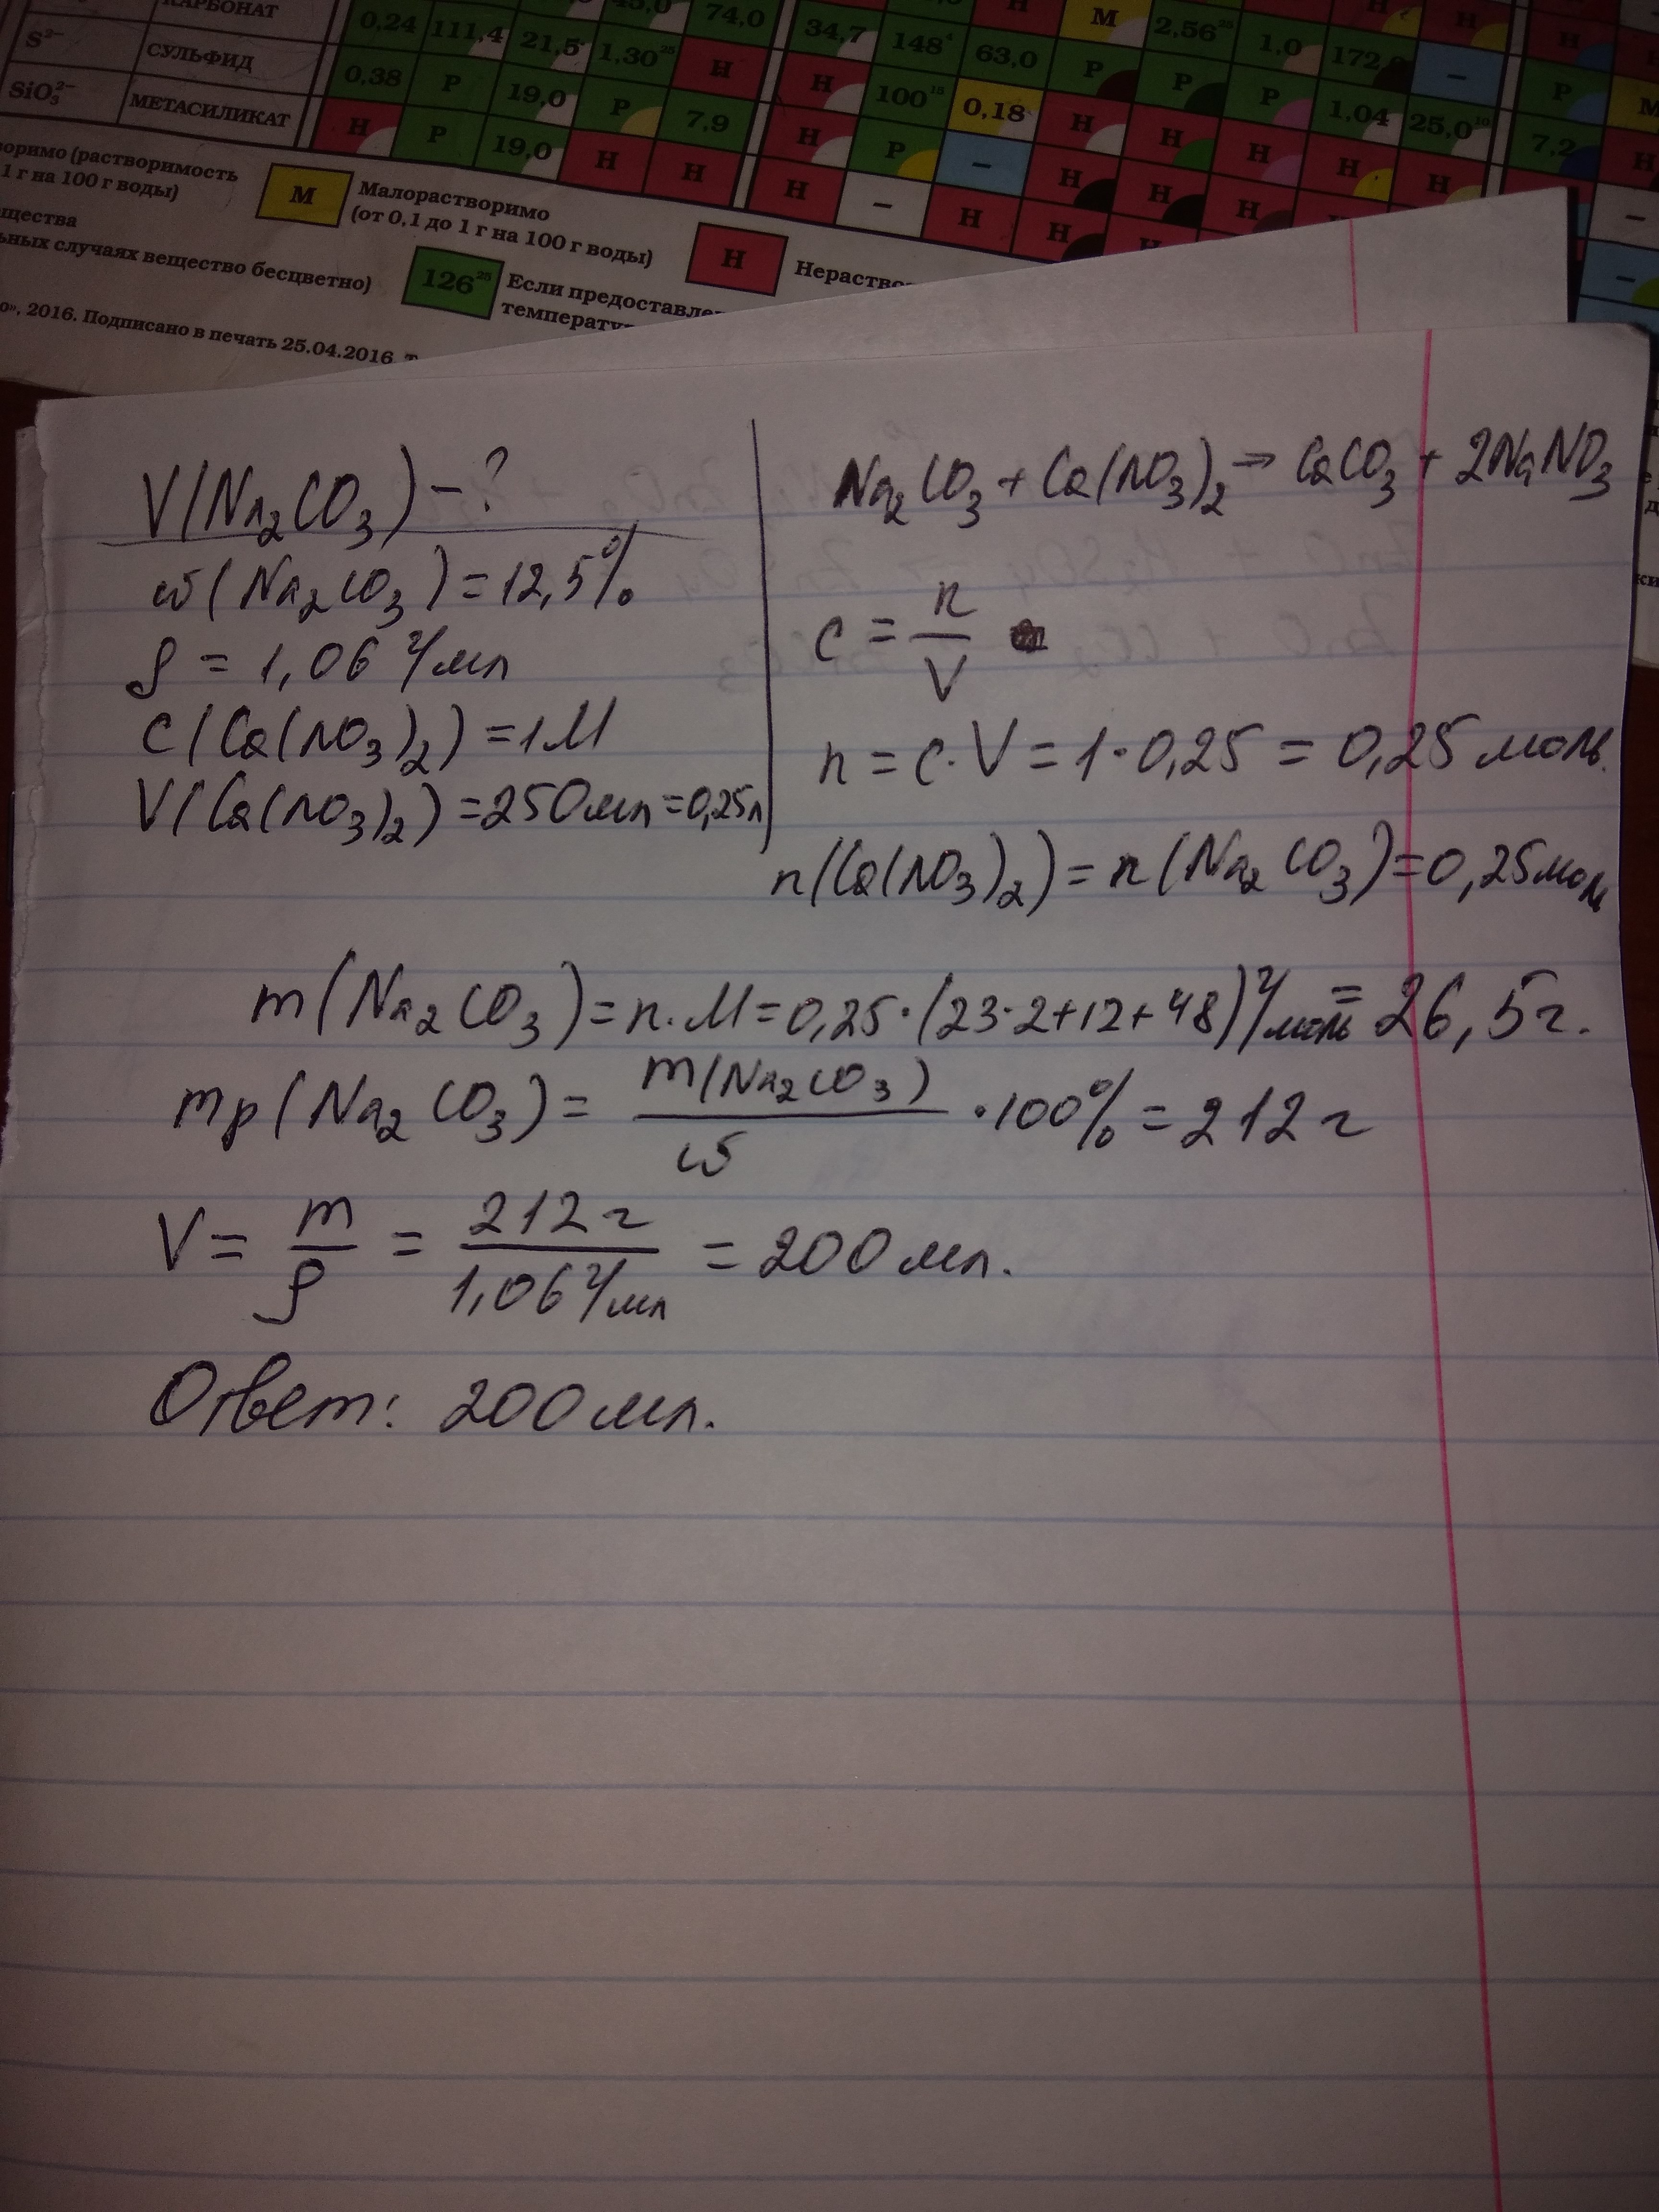 КАРБОНАТ 0,24 111,4 21,5 45,0 74,0 34,7 148⁴ 63,0 М 2,56²⁵ 1,0 172 –
S²⁻ СУЛЬФИД 0,38 Р 19,0 1,30²⁵ Н Н 100¹⁸ 0,18 Р Р Р 1,04 25,0¹⁰ Р М
SiO₃²⁻ МЕТАСИЛИКАТ Н Р 19,0 Р 7,9 Н Р – Н Н Н Н Н 7,2 Н
Н Н Н – Н Н Н Н
воримо (растворимость
1 г на 100 г воды)
М Малорастворимо
(от 0,1 до 1 г на 100 г воды)
Н Нераство
щества
ьных случаях вещество бесцветно)
126²⁵ Если предоставле
температу
о», 2016. Подписано в печать 25.04.2016. Т
V(Na₂CO₃) – ?
ω(Na₂CO₃) = 12,5%
ρ = 1,06 г/мл
c(Ca(NO₃)₂) = 1М
V(Ca(NO₃)₂) = 250мл = 0,25л
Na₂CO₃ + Ca(NO₃)₂ → CaCO₃ + 2NaNO₃
c = n/V
n = c·V = 1·0,25 = 0,25 моль.
n(Ca(NO₃)₂) = n(Na₂CO₃) = 0,25моль
m(Na₂CO₃) = n·M = 0,25·(23·2+12+48) г/моль = 26,5г.
mр(Na₂CO₃) = m(Na₂CO₃)/ω · 100% = 212 г
V = m/ρ = 212 г/1,06 г/мл = 200 мл.
Ответ: 200 мл.